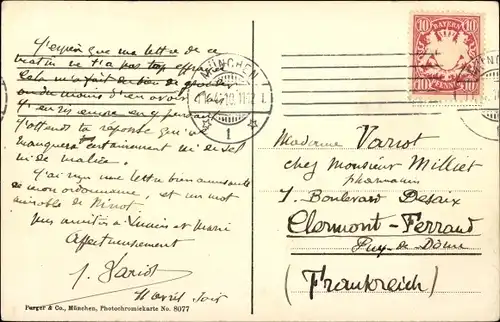 J'espère que ma lettre de ce
matin ne t'a pas trop effrayée
Cela m'a fait du bien de
ou du moins d'en avoir
J'en ris encore en y pensant
J'attends ta réponse qui ne
manquera certainement ni de sel
ni de malice.
J'ai reçu une lettre bien amusante
de mon ordonnance, et un mot
aimable de
mes amitiés à Lucien et Marie
Affectueusement
J. Variot
11 avril soir
Perger & Co., München, Photochromiekarte No. 8077
MÜNCHEN
1
10 BAYERN 10
10 PFENNIG 10
Madame Variot
chez Monsieur Milliet
pharmacien
7. Boulevard Desaix
Clermont-Ferrand
Puy-de-Dôme
(Frankreich)